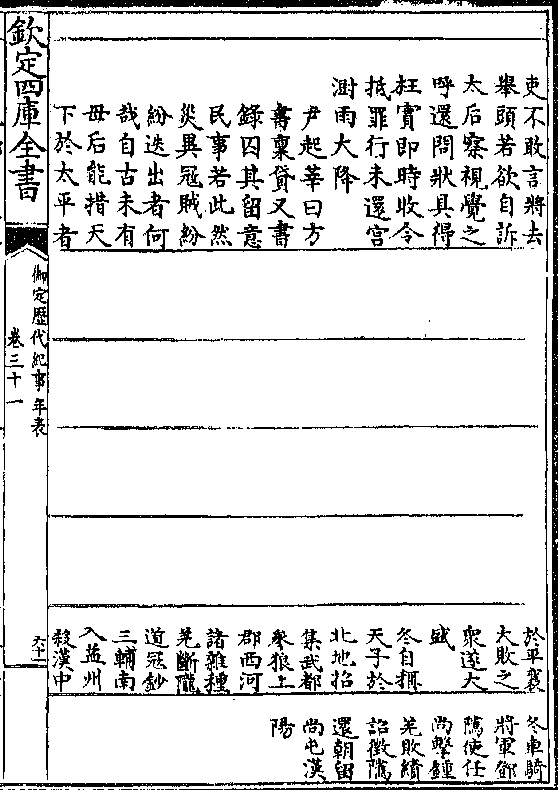 吏不敢言將去
舉頭若欲自訴
太后察視覺之
呼還問狀具得
枉實即時收令
抵罪行未還宫
澍雨大降
尹起莘曰方
書稟貸又書
錄囚其留意
民事若此然
災異冦賊紛
紛迭出者何
哉自古未有
母后能措天
下於太平者
於平襄
大敗之
衆遂大
盛
冬自稱
天子於
北地招
集武都
參狼上
郡西河
諸雜種
羌斷隴
道冦鈔
三輔南
入益州
殺漢中
冬車騎
將軍鄧
隲使任
尚擊鍾
羌敗績
詔徵隲
還朝留
尚屯漢
陽
欽定四庫全書
御定歴代紀事年表
卷三十一
六十一